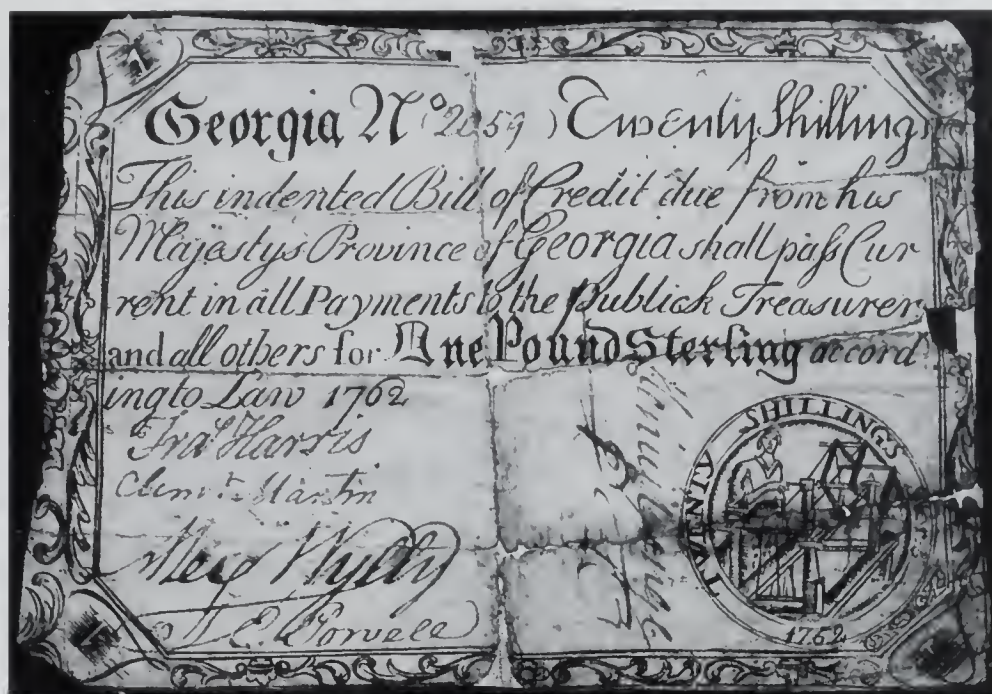 Georgia No 2659 ) Twenty Shillings
This indented Bill of Credit due from his
Majestys Province of Georgia shall paſs Cur
rent in all Payments to the Publick Treasurer
and all others for One Pound Sterling accord
ing to Law 1762
Fra.s Harris
Clemt. Martin
Alex Wylly
N. E. Powell
TWENTY SHILLINGS
1762